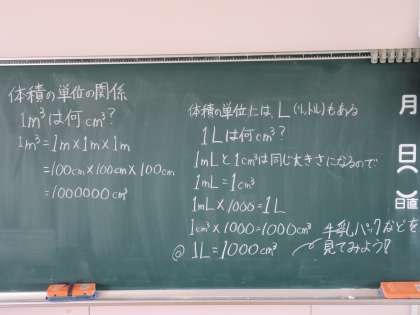 体積の単位の関係
1m³は何cm³?
1m³=1m×1m×1m
=100cm×100cm×100cm
=1000000cm³
体積の単位には、L(リットル)もある
1Lは何cm³?
1mLと1cm³は同じ大きさになるので
1mL=1cm³
1mL×1000=1L
1cm³×1000=1000cm³
@ 1L=1000cm³
牛乳パックなどを
見てみよう!
月
日
(
)
日直